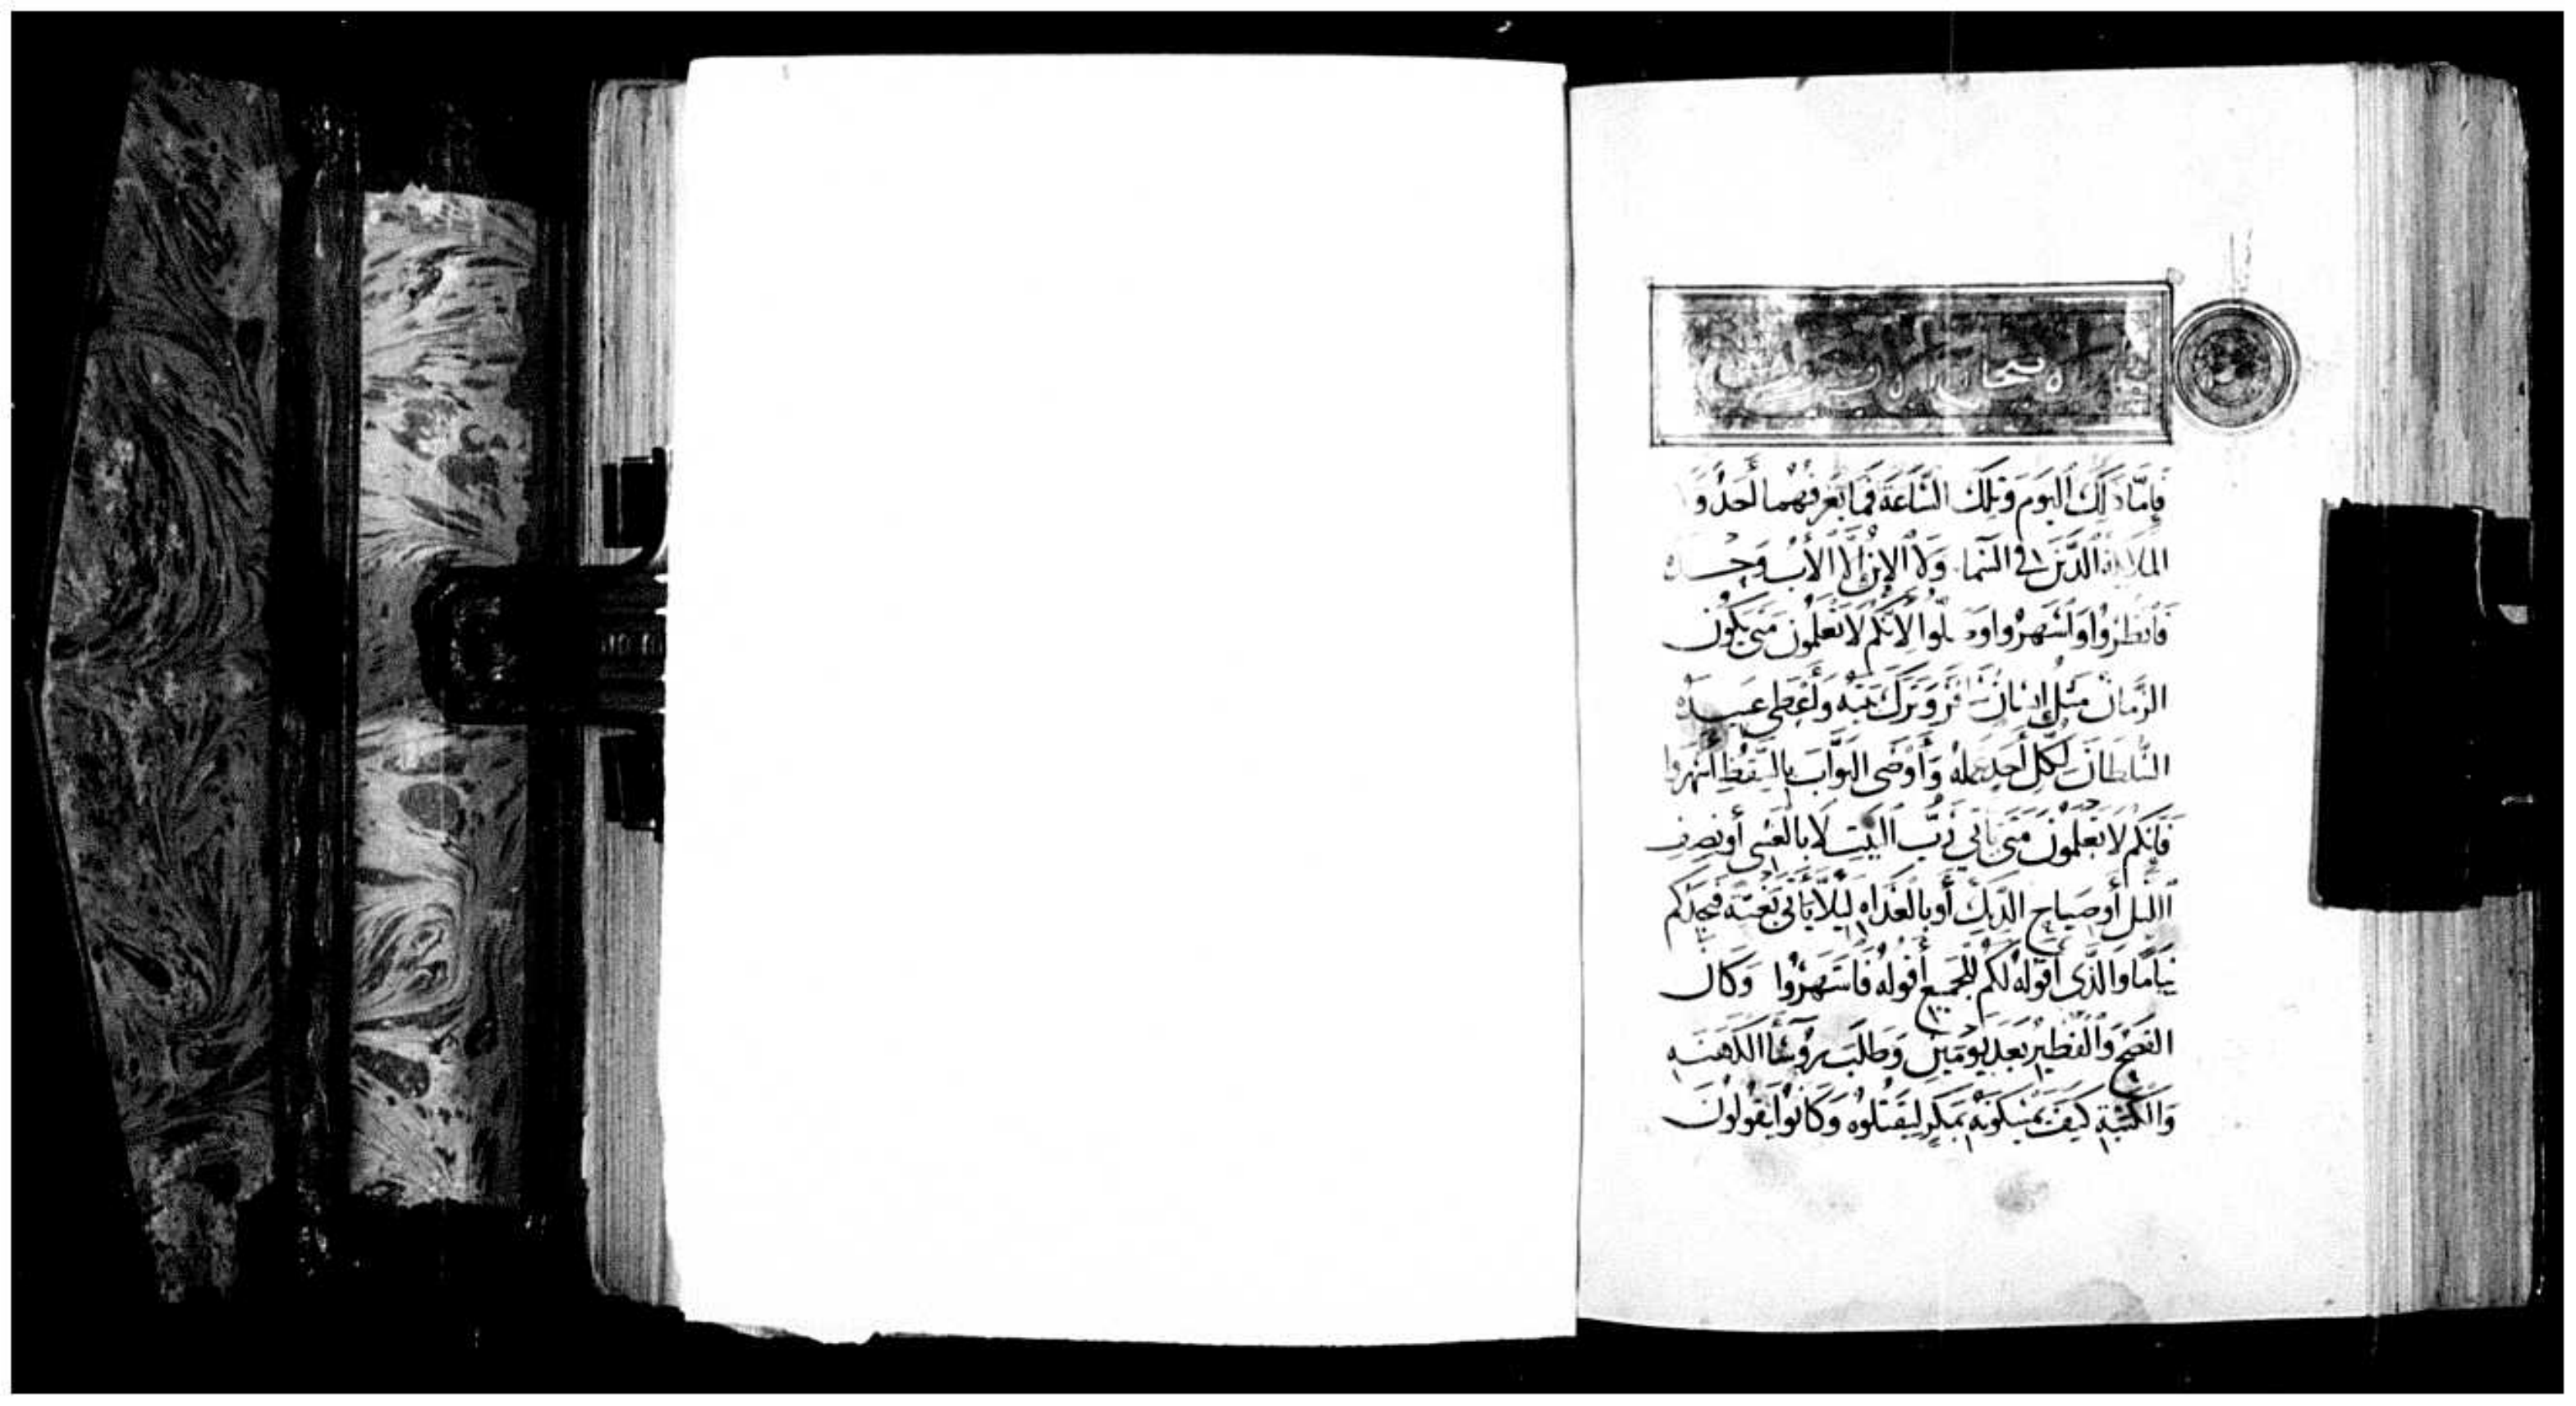 فَامَّا ذَلِكَ اليَوْمَ وَتِلْكَ السَّاعَةَ فَمَا يَعْرِفُهُمَا أَحَدٌ وَلَا
المَلَائِكَة الَّذِينَ فِي السَّمَا وَلَا الإِبْنُ إِلَّا الأَبُ وَحْدَهُ
فَانظُرُوا وَاسْهَرُوا وَصَلُّوا لِأَنَّكُم لَا تَعْلَمُونَ مَتَى يَكُونُ
الزَّمَانُ مَثَلُ إِنسَانٍ سَافَرَ وَتَرَكَ بَيْتَهُ وَأَعْطَى عَبِيدَهُ
السُّلطَانَ لِكُلِّ أَحَدٍ عَمَلَهُ وَأَوْصَى البَوَّابَ بِالتَيَقُّظِ اسْهَرُوا
فَإِنَّكُم لَا تَعْلَمُونَ مَتَى يَاتِي رَبُّ البَيْتِ لَا بِالعَشِي أَو نِصْفِ
اللَّيلِ أَو صِيَاحِ الدِّيكِ أَو بِالغَدَاهِ لِيَلَّا يَأْتِي بَغْتَةً فَيَجِدَكُم
نِيَامًا وَالَّذِي أَقُولُهُ لَكُم لِلْجَمِيعِ أَقُولُهُ فَاسْهَرُوا وَكَانَ
الفِصْحُ وَالْفَطِيرُ بَعْدَ يَوْمَيْنِ وَطَلَبَ رُؤسَا الكَهَنَهِ
وَالكَتَبَةِ كَيْفَ يُمْسِكُونَهُ بِمَكرٍ لِيَقْتُلُوهُ وَكَانُوا يَقُولُونَ